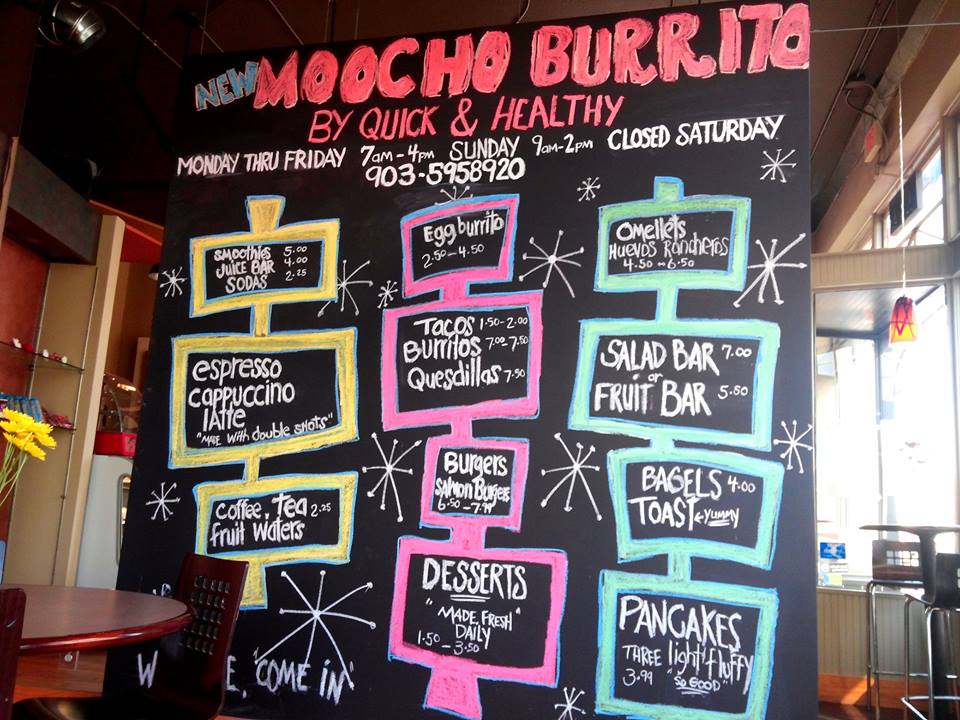 NEW MOOCHO BURRITO
BY QUICK & HEALTHY
MONDAY THRU FRIDAY 7am-4pm SUNDAY 9am-2pm CLOSED SATURDAY
903-5958920
SMOOTHIES 5.00
JUICE BAR 4.00
SODAS 2.25
espresso
cappuccino
latte
"MADE with double SHOTS"
Coffee, Tea 2.25
Fruit Waters
COME IN
Egg burrito
2.50-4.50
TACOS 1.50-2.00
Burritos 7.00 7.50
Quesdillas 7.50
Burgers
Salmon Burgers
6.50-7.99
DESSERTS
"MADE FRESH"
DAILY
1.50-3.50
Omellets
Huevos Rancheros
4.50-6.50
SALAD BAR 7.00
or
FRUIT BAR 5.50
BAGELS 4.00
TOAST YUMMY
PANCAKES
THREE light fluffy
3.99 "SO GOOD"